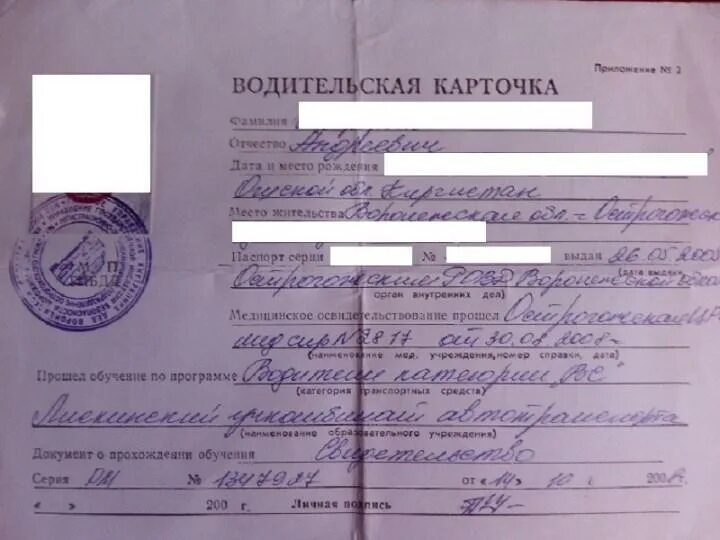 Приложение № 2
ВОДИТЕЛЬСКАЯ КАРТОЧКА
Фамилия
Отчество Андреевич
Дата и место рождения
Ошской обл. Киргистан
Место жительства Воронежская обл. Острогожск
Паспорт серии № выдан 26.05.200
(дата выдачи)
Острогожским РОВД Воронежской
орган внутренних дел)
Медицинское освидетельствование прошел Острогожская
мед спр № 2817 от 30.08.2008
(наименование мед. учреждения, номер справки, дата)
Прошел обучение по программе Водители категории "ВС"
(категория транспортных средств)
Лискинский автотранспорта
(наименование образовательного учреждения)
Документ о прохождении обучения Свидетельство
Серия РМ № 1347927 от « 14 » 10 2008г.
« » 200 г. Личная подпись